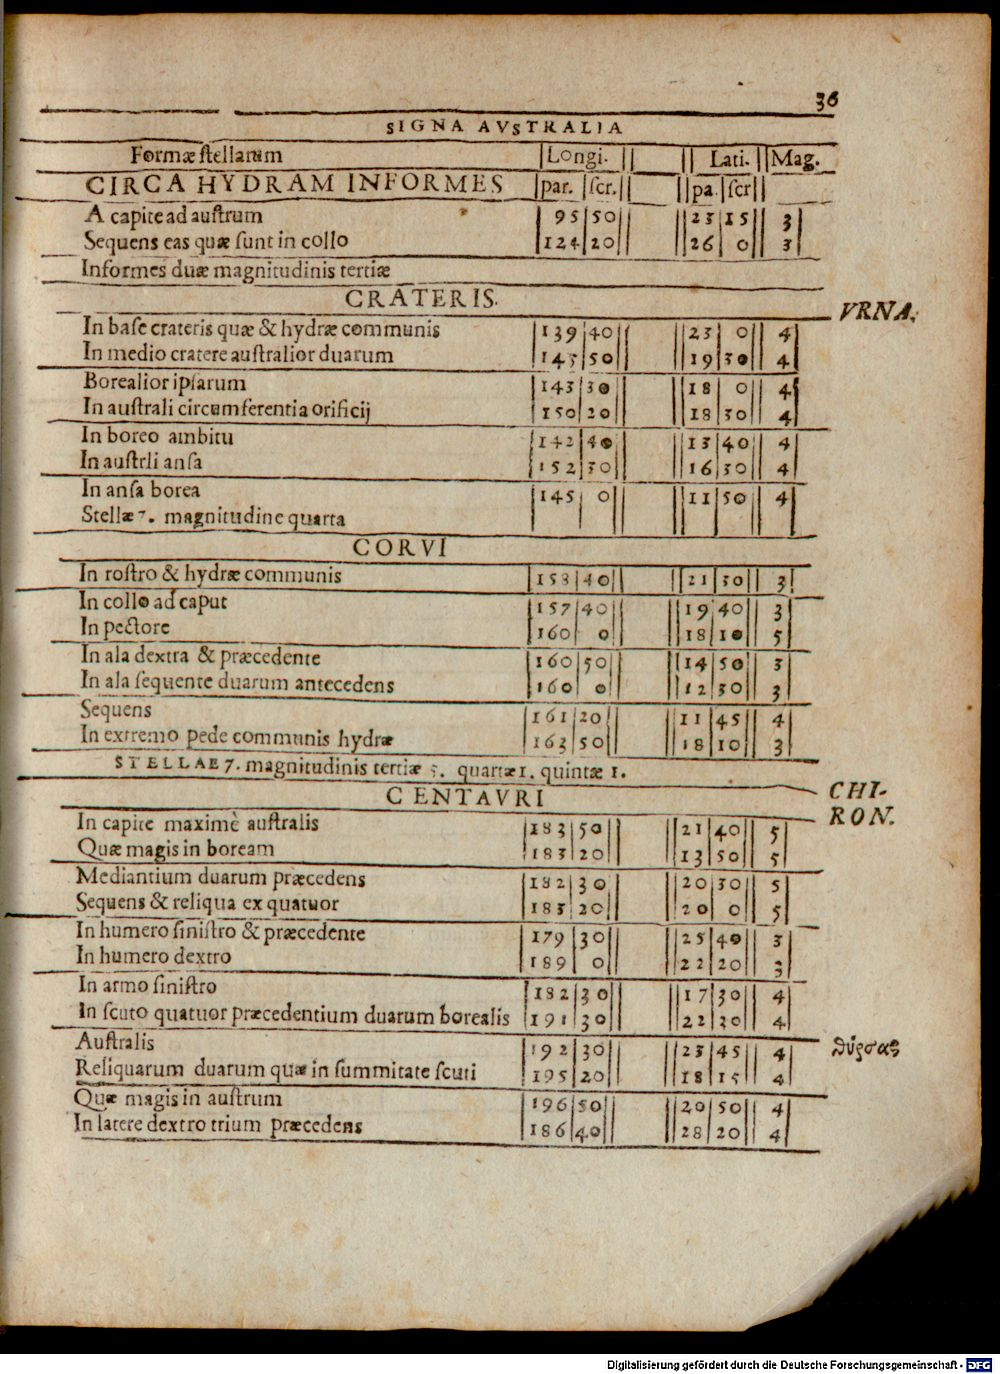 36
SIGNA AVSTRALIA
Formæ stellarum | Longi. || || Lati. || Mag.
CIRCA HYDRAM INFORMES | par. | scr. || || pa. | scr ||
A capite ad austrum | 95 | 50 || || 23 | 15 || 3
Sequens eas quæ sunt in collo | 124 | 20 || || 26 | 0 || 3
Informes duæ magnitudinis tertiæ
CRATERIS.
VRNA.
In base crateris quæ & hydræ communis | 139 | 40 || || 23 | 0 || 4
In medio cratere australior duarum | 145 | 50 || || 19 | 30 || 4
Borealior ipsarum | 143 | 30 || || 18 | 0 || 4
In australi circumferentia orificij | 150 | 20 || || 18 | 30 || 4
In boreo ambitu | 142 | 40 || || 13 | 40 || 4
In austrli ansa | 152 | 30 || || 16 | 30 || 4
In ansa borea | 145 | 0 || || 11 | 50 || 4
Stellæ 7. magnitudine quarta
CORVI
In rostro & hydræ communis | 158 | 40 || || 21 | 30 || 3
In collo ad caput | 157 | 40 || || 19 | 40 || 3
In pectore | 160 | 0 || || 18 | 10 || 5
In ala dextra & præcedente | 160 | 50 || || 14 | 50 || 3
In ala sequente duarum antecedens | 160 | 0 || || 12 | 30 || 3
Sequens | 161 | 20 || || 11 | 45 || 4
In extremo pede communis hydræ | 163 | 50 || || 18 | 10 || 3
STELLAE 7. magnitudinis tertiæ 5. quartæ 1. quintæ 1.
CENTAVRI
CHI-
RON.
In capite maximè australis | 183 | 50 || || 21 | 40 || 5
Quæ magis in boream | 183 | 20 || || 13 | 50 || 5
Mediantium duarum præcedens | 182 | 30 || || 20 | 30 || 5
Sequens & reliqua ex quatuor | 183 | 20 || || 20 | 0 || 5
In humero sinistro & præcedente | 179 | 30 || || 25 | 40 || 3
In humero dextro | 189 | 0 || || 22 | 20 || 3
In armo sinistro | 182 | 30 || || 17 | 30 || 4
In scuto quatuor præcedentium duarum borealis | 191 | 30 || || 22 | 30 || 4
Australis | 192 | 30 || || 23 | 45 || 4
θύρσος
Reliquarum duarum quæ in summitate scuti | 195 | 20 || || 18 | 15 || 4
Quæ magis in austrum | 196 | 50 || || 20 | 50 || 4
In latere dextro trium præcedens | 186 | 40 || || 28 | 20 || 4
Digitalisierung gefördert durch die Deutsche Forschungsgemeinschaft - DFG